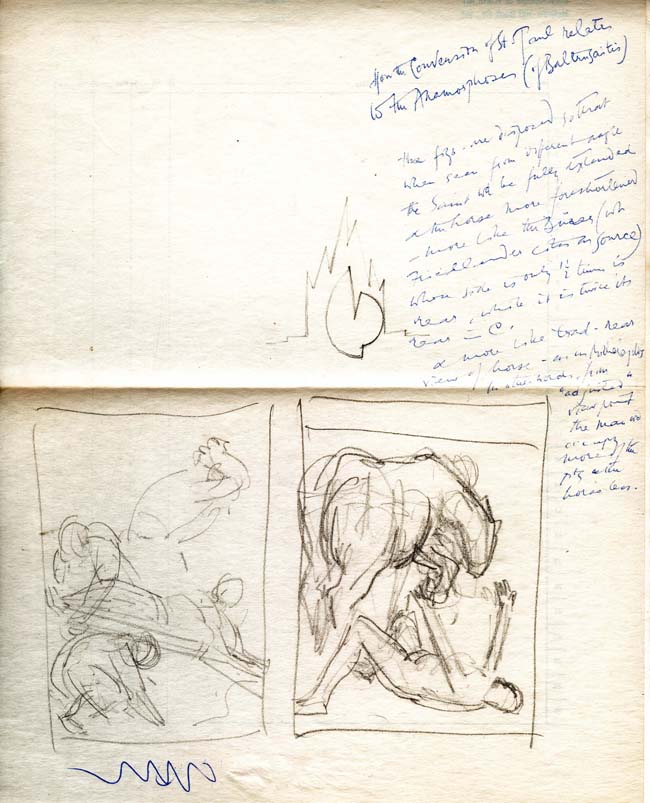 How the Conversion of St. Paul relates
to the Anamorphoses (of Baltrusaitis)
the figs. are disposed so that
when seen from different angle
the Saint wd be fully extended
& the horse more foreshortened
- more like the Dürer (wh
Friedlaender cites as source)
whose side is only 1½ times its
rear, while it is twice its
rear in C.
& more like trad. rear
views of horse - as in
In other words, from
"adjusted"
viewpoint
the man wd
occupy
more of the
ptg & the
horse less.